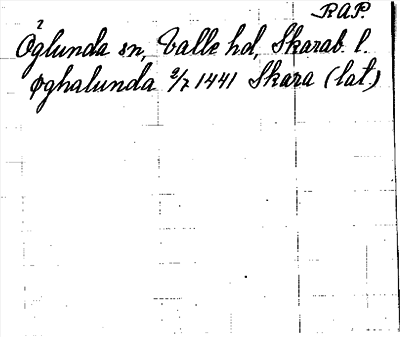 RAP.
Öglunda sn, Valle hd, Skarab. l.
øghalunda 2/7 1441 Skara (lat.)